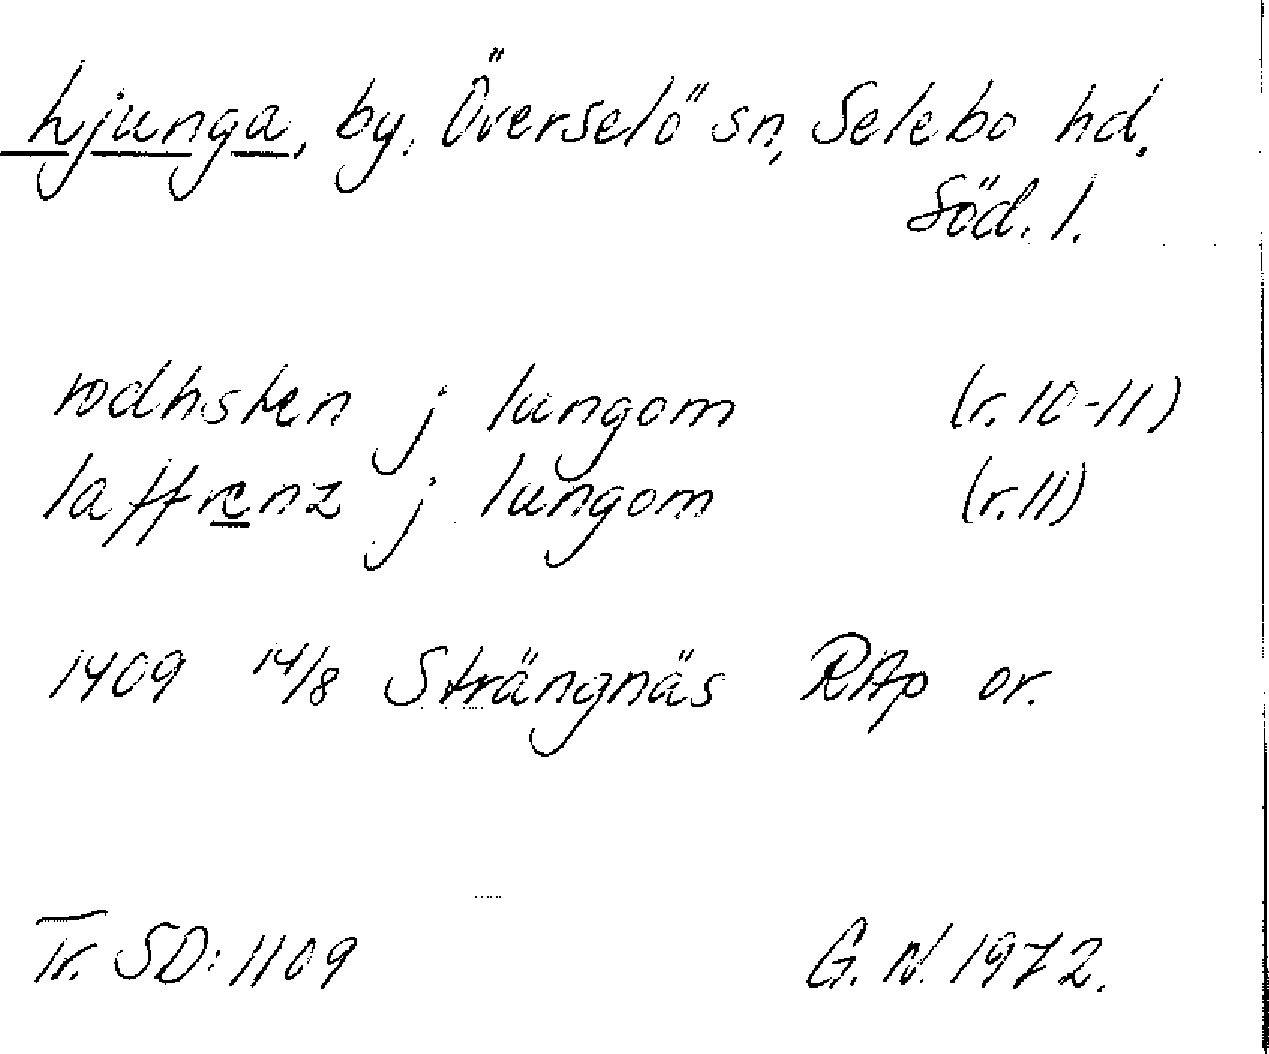 Ljunga, by, Överselö sn, Selebo hd,
Söd. l.
rodhsten j lungom (r. 10-11)
laffrenz j lungom (r. 11)
1409 14/8 Strängnäs RAp or.
Tr. SD: 1109 G. N. 1972.